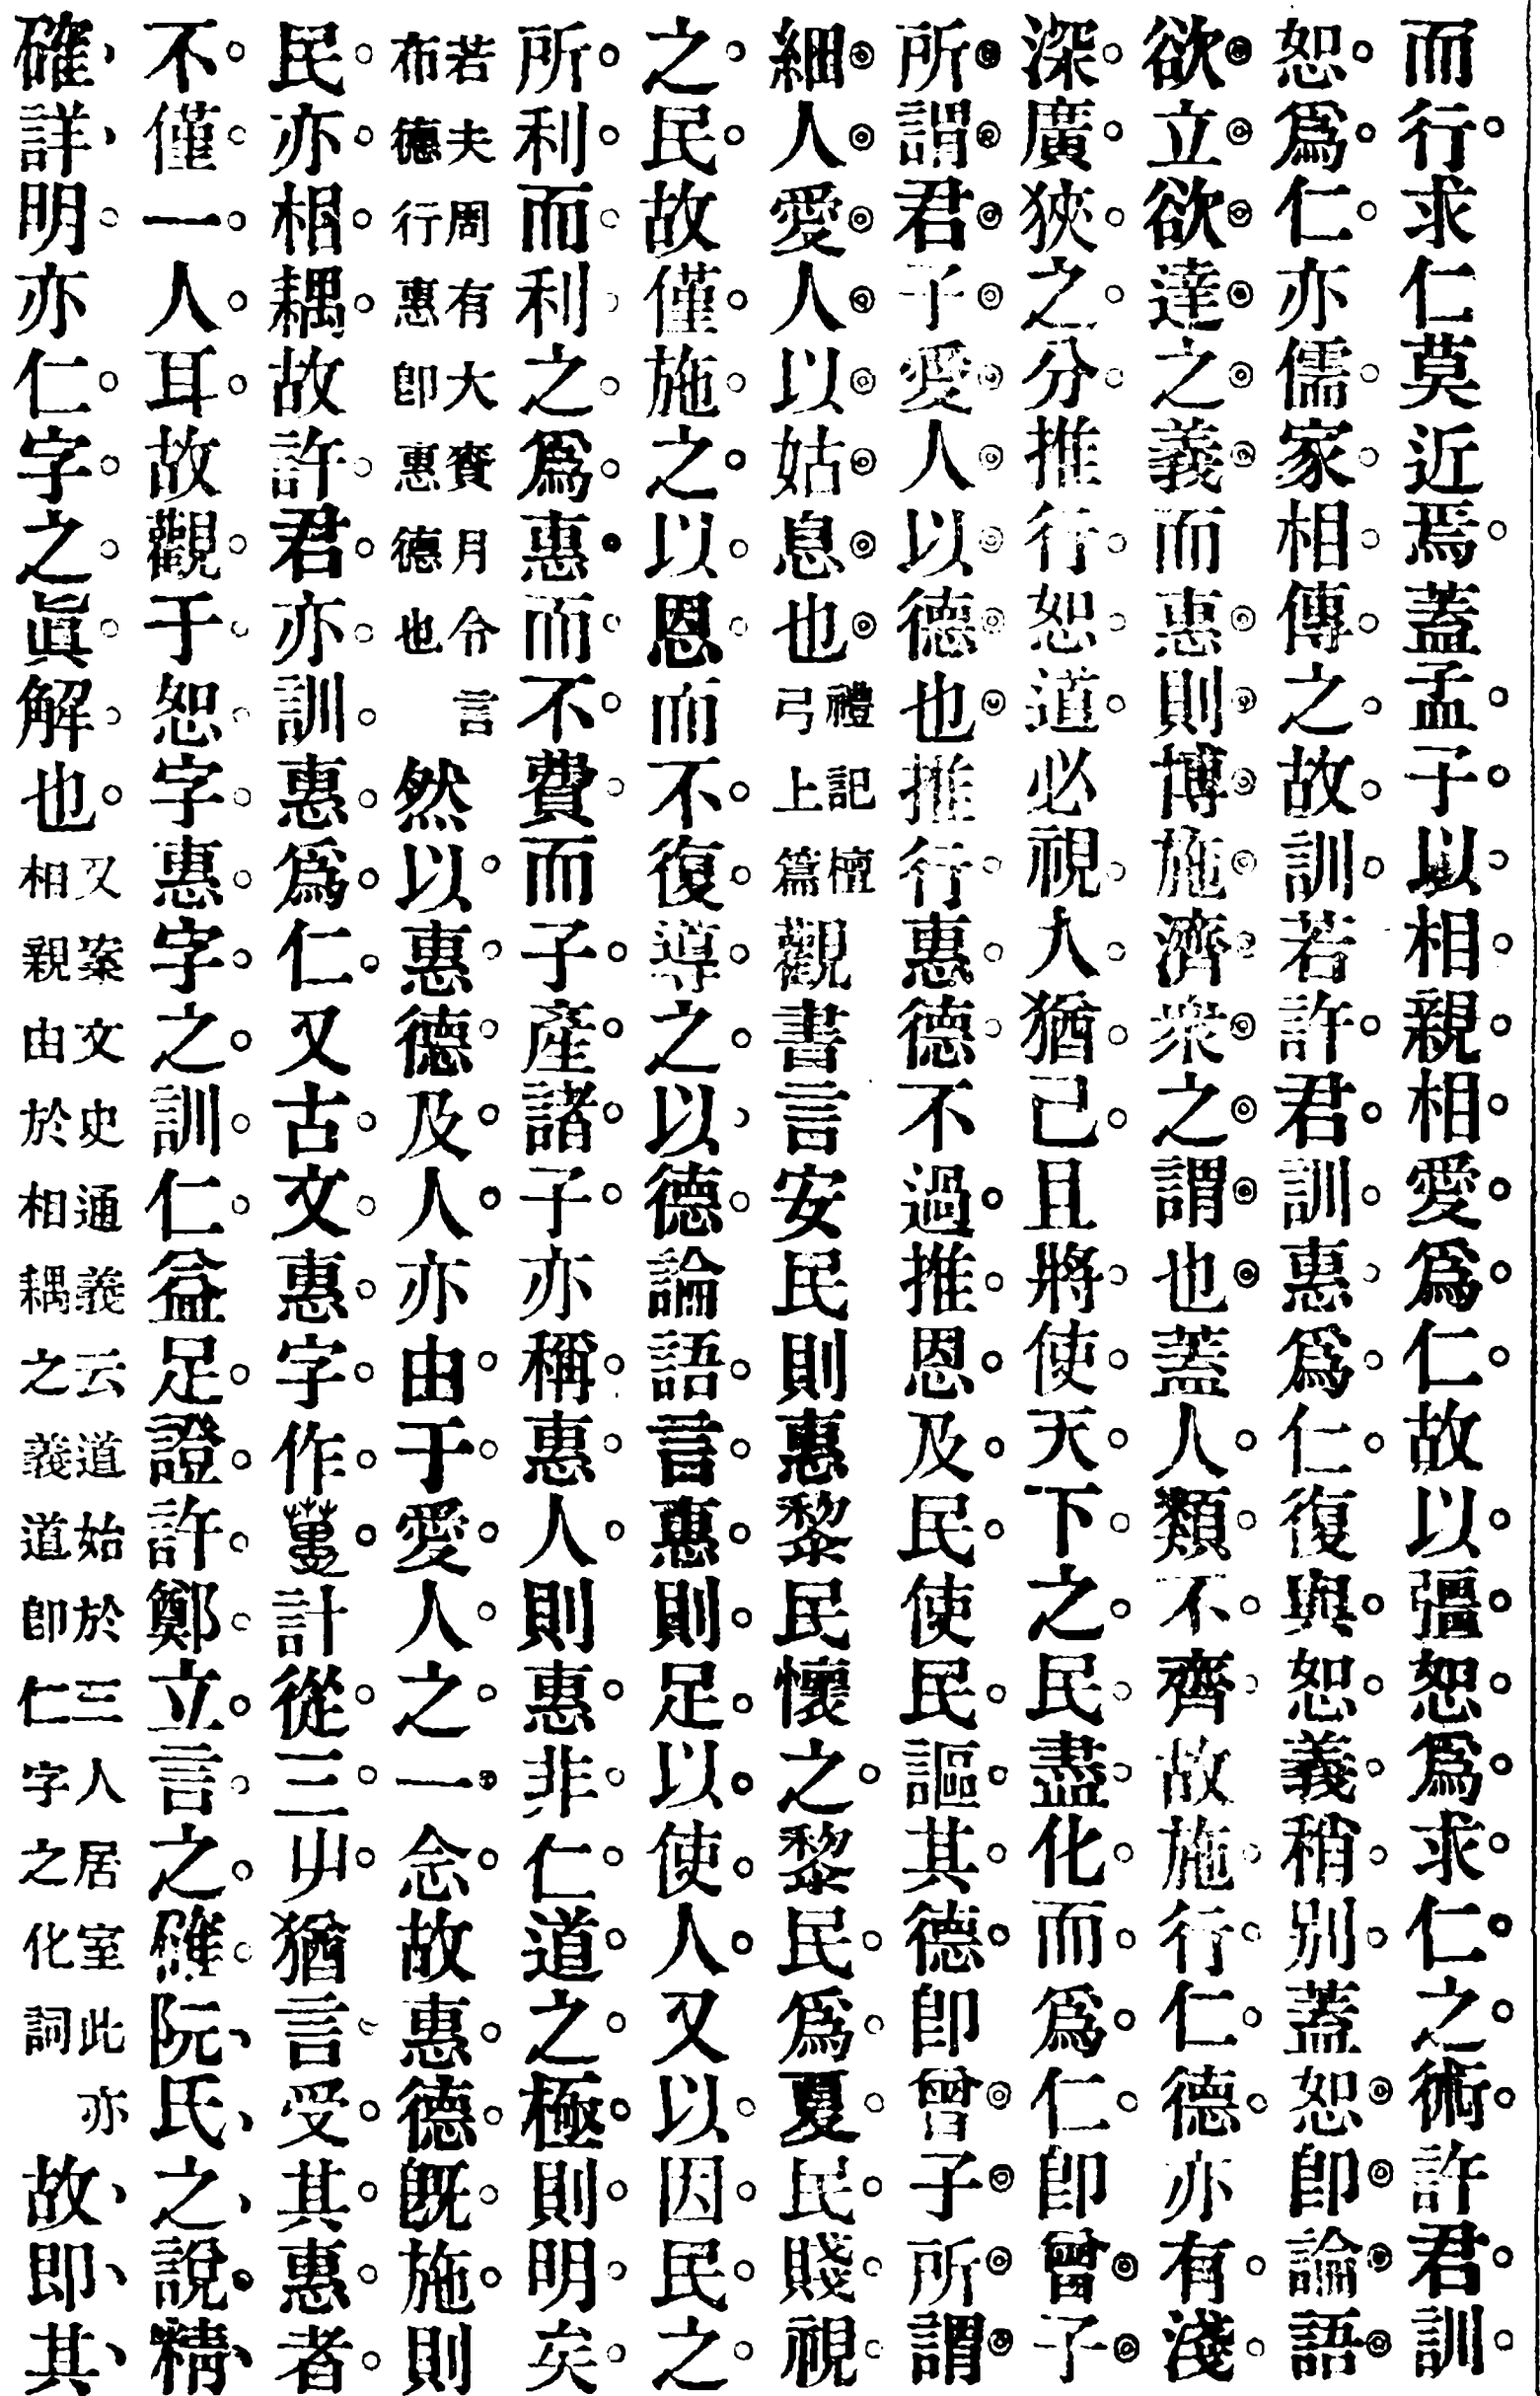 而行求仁莫近焉蓋孟子以相親相愛爲仁故以彊恕爲求仁之術許君訓
恕爲仁亦儒家相傳之故訓若許君訓惠爲仁復與恕義稍别蓋恕卽論語
欲立欲達之義而惠則博施濟衆之謂也蓋人類不齊故施行仁德亦有淺
深廣狹之分推行恕道必視人猶己且將使天下之民盡化而爲仁卽曾子
所謂君子愛人以德也推行惠德不過推恩及民使民謳其德卽曾子所謂
細人愛人以姑息也禮記檀弓上篇觀書言安民則惠黎民懷之黎民爲夏民賤視
之民故僅施之以恩而不復導之以德論語言惠則足以使人又以因民之
所利而利之爲惠而不費而子產諸子亦稱惠人則惠非仁道之極則明矣
若夫周有大賚月令言布德行惠卽惠德也然以惠德及人亦由于愛人之一念故惠德旣施則
民亦相耦故許君亦訓惠爲仁又古文惠字作蕙計從三屮猶言受其惠者
不僅一人耳故觀于恕字惠字之訓仁益足證許鄭立言之確阮氏之說精
確詳明亦仁字之眞解也又案文史通義云道始於三人居室此亦相親由於相耦之義道卽仁字之化詞故即其